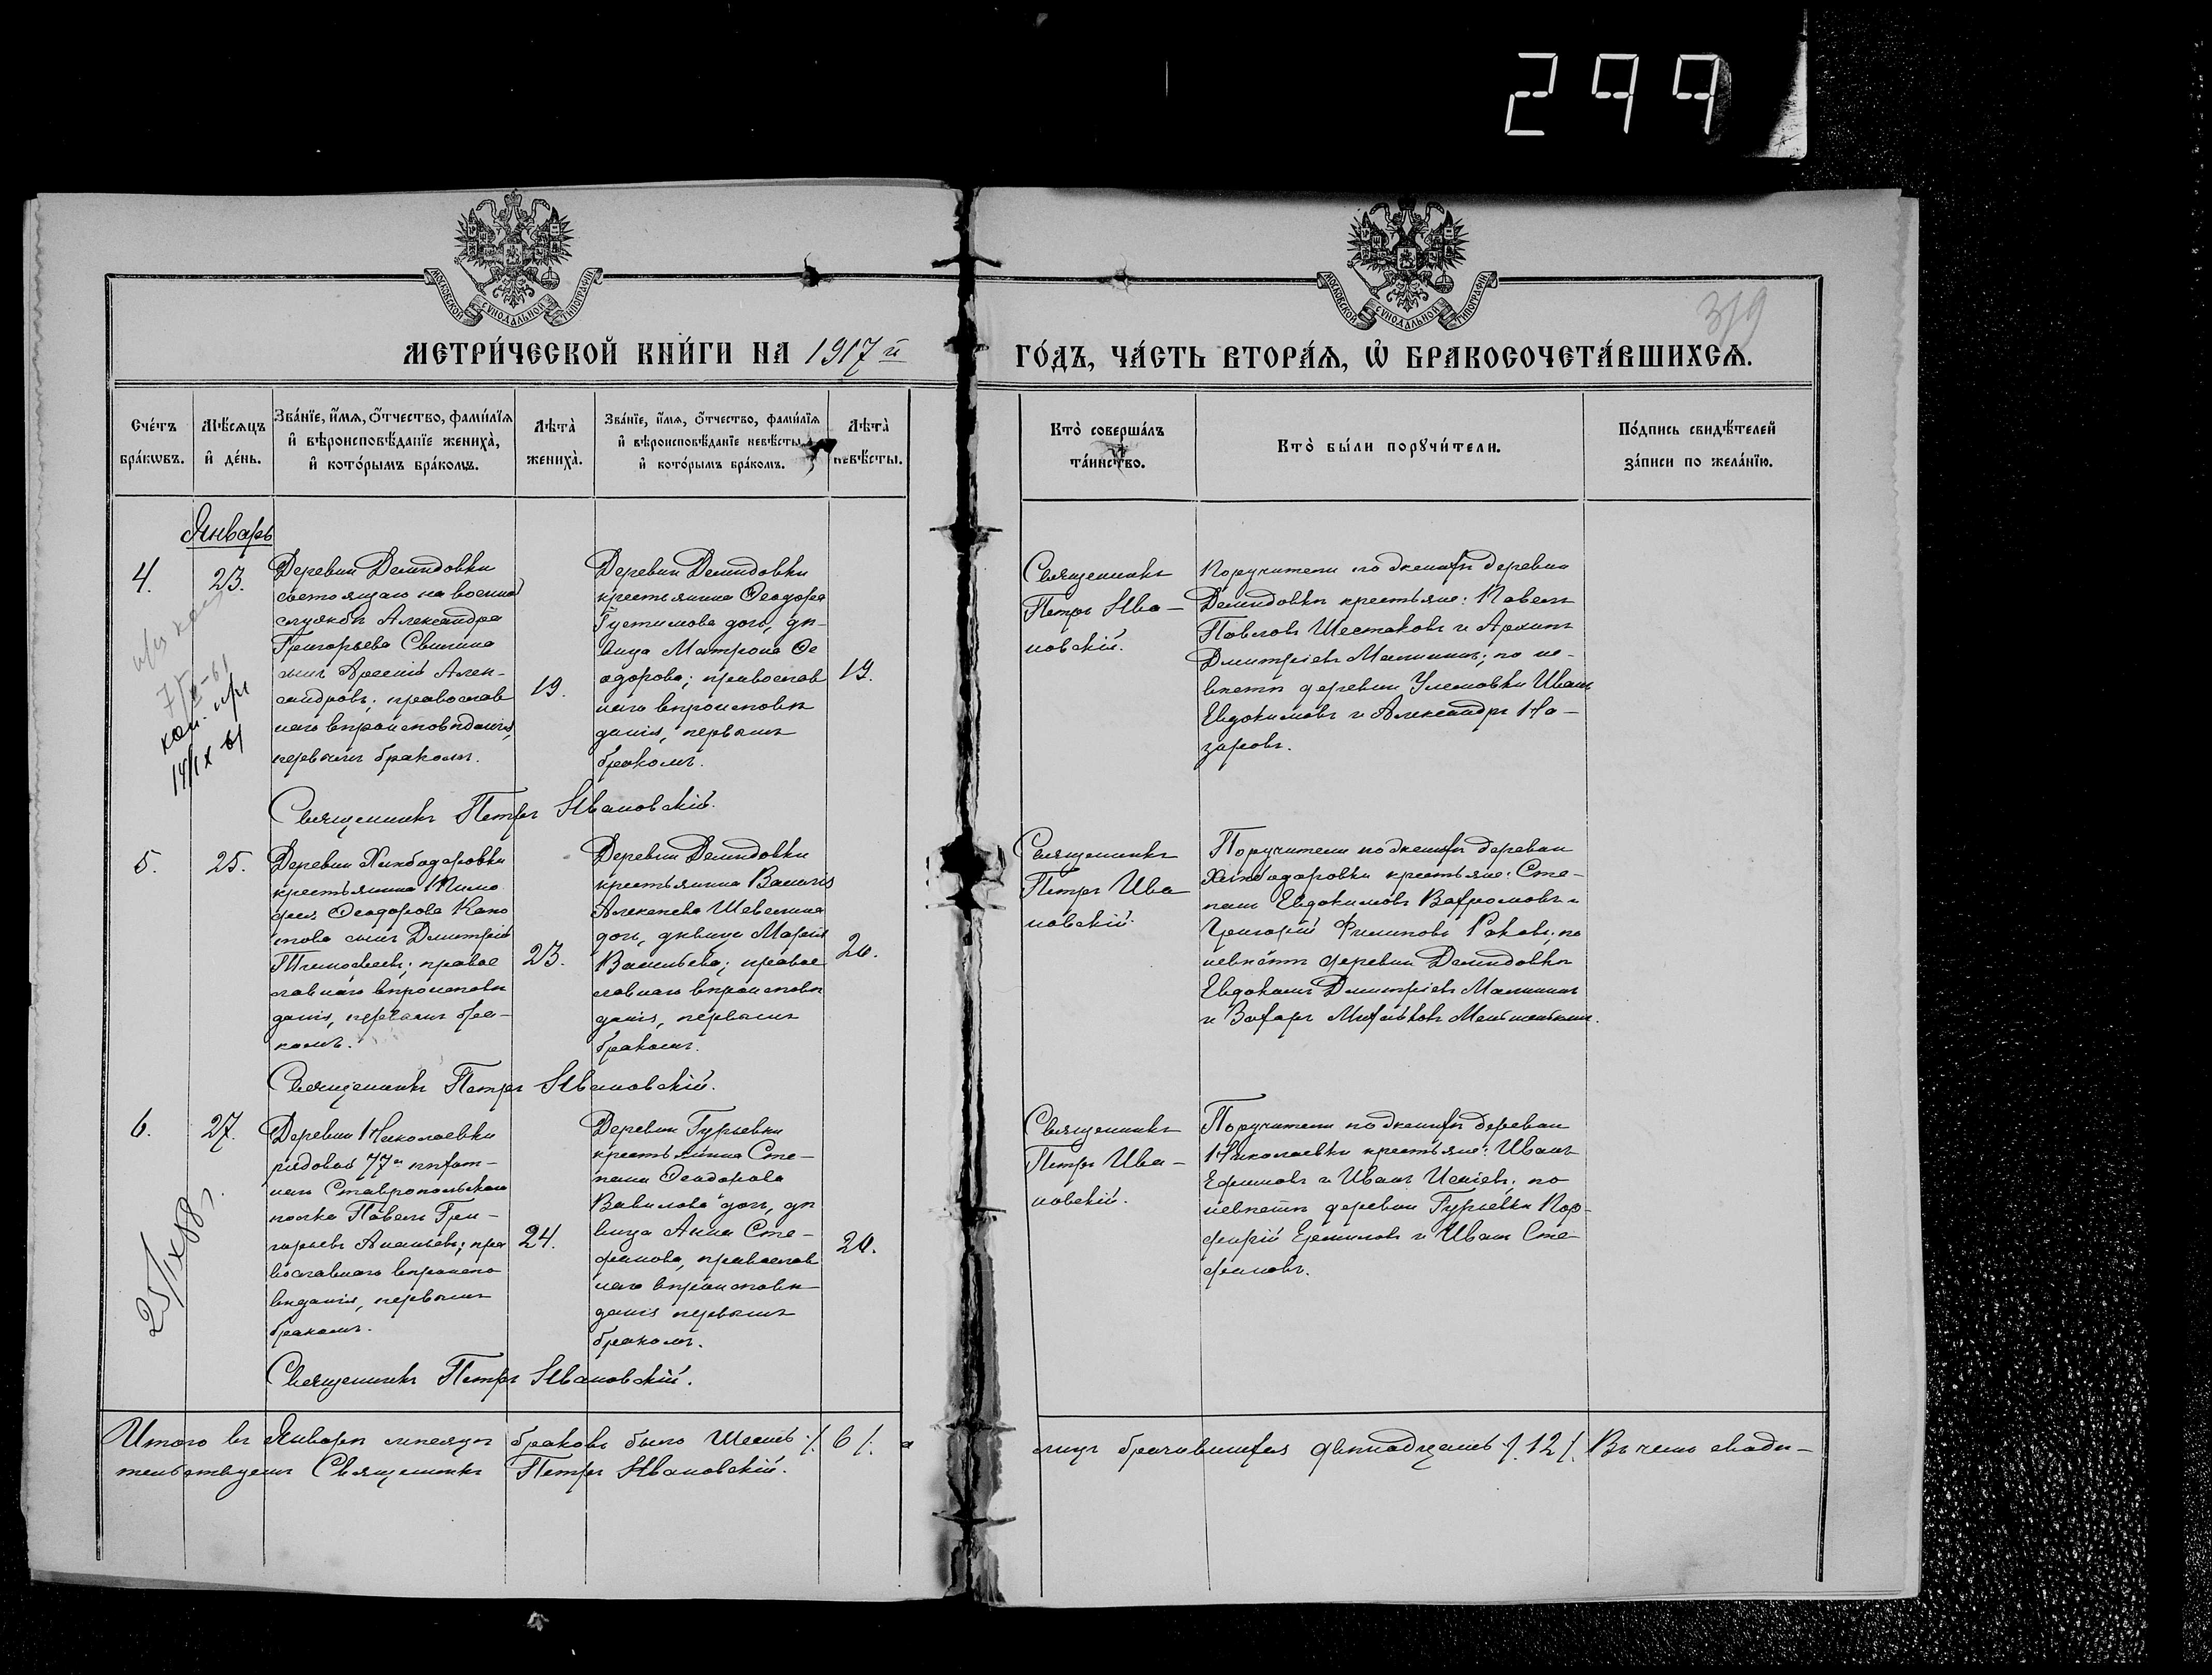 299
МОСКОВСКОЙ СУНОДАЛЬНОЙ ТИПОГРАФІИ
МОСКОВСКОЙ СУНОДАЛЬНОЙ ТИПОГРАФІИ
319
МЕТРИ́ЧЕСКОЙ КНИ́ГИ НА 1917 й
ГО́ДЪ, ЧА́СТЬ ВТОРА́Ѧ, Ѡ҆ БРАКОСОЧЕТА́ВШИХСѦ.
Сче́тъ бра́кѡвъ.
Мѣ́сѧцъ и҆ де́нь.
Зва́нїе, и҆́мѧ, ѻ҆́тчество, фами́лїѧ
и҆ вѣроисповѣ́данїе жениха̀,
и҆ кото́рымъ бра́комъ.
Лѣта̀ жениха̀.
Зва́нїе, и҆́мѧ, ѻ҆́тчество, фами́лїѧ
и҆ вѣроисповѣ́данїе невѣ́сты,
и҆ кото́рымъ бра́комъ.
Лѣта̀ невѣ́сты.
Кто̀ соверша́лъ та́инство.
Кто̀ бы́ли порꙋчи́тели.
По́дпись свидѣ́телей
за́писи по жела́нїю.
Январь
4.
23.
Деревни Демидовки
состоящаго на военной
службѣ Александра
Григорьева Свинина
сынъ Арсеній Алек-
сандровъ; православ
наго вѣроисповѣданія,
первымъ бракомъ.
19.
Деревни Демидовки
крестьянина Ѳеодора
Густимова дочь, дѣ-
вица Матрона Ѳе
одорова; православ
наго вѣроисповѣ
данія, первымъ
бракомъ.
19.
Священникъ
Петръ Ива-
новскій.
Поручители по женихѣ деревни
Демидовки крестьяне: Павелъ
Павловъ Шестаковъ и Архипъ
Дмитріевъ Малининъ; по не-
вѣстѣ деревни Улемовки Иванъ
Евдокимовъ и Александръ На-
заровъ.
7/IX-61
14/IX 61
Священникъ Петръ Ивановскій.
5.
25.
Деревни
крестьянина Тимо
фея Ѳеодорова
сынъ Дмитрій
Тимофеевъ; право
славнаго вѣроисповѣ
данія, первымъ бра-
комъ.
23.
Деревни Демидовки
крестьянина Василія
Алексѣева
дочь, дѣвица Марія
Васильева; право
славнаго вѣроисповѣ
данія, первымъ
бракомъ.
20.
Священникъ
Петръ Ива
новскій.
Поручители по женихѣ деревни
крестьяне: Сте-
панъ Евдокимовъ и
Григорій Филиповъ Раковъ; по
невѣстѣ деревни Демидовки
Евдокимъ Дмитріевъ Малининъ
и Захаръ
Священникъ Петръ Ивановскій.
6.
27.
Деревни Николаевки
рядовой 77го пѣхот-
наго Ставропольскаго
полка Павелъ Гри-
горьевъ Ананьевъ; пра
вославнаго вѣроиспо
вѣданія, первымъ
бракомъ.
24.
Деревни Гурьевки
крестьянина Сте-
пана Ѳеодорова
Вавилова дочь, дѣ
вица Анна Сте-
фанова, православ
наго вѣроисповѣ
данія первымъ
бракомъ.
20.
Священникъ
Петръ Ива-
новскій.
Поручители по женихѣ деревни
Николаевки крестьяне: Иванъ
Ефимовъ и Иванъ Исаевъ; по
невѣстѣ деревни Гурьевки Пор-
фирій Ермиловъ и Иванъ Сте-
фановъ.
25/IX 88 г.
Священникъ Петръ Ивановскій.
Итого въ Январѣ мѣсяцѣ браковъ было Шесть ./. 6 /. а
лицъ брачившихся двѣнадцать /. 12 /. Въ чемъ свидѣ-
тельствуетъ Священникъ Петръ Ивановскій.